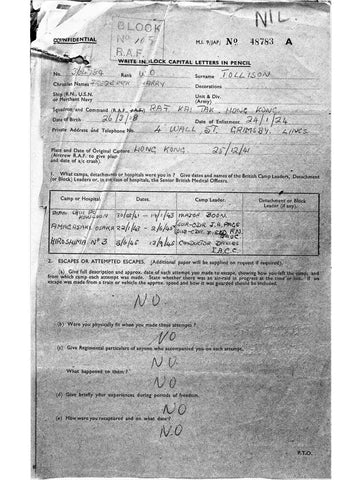 NIL.
BLOCK
No 105
R.A.F.
CONFIDENTIAL
M.I. 9/JAP/ No 48783 A
WRITE IN BLOCK CAPITAL LETTERS IN PENCIL
No. Rank W O Surname TOLLISON
Christian Names FREDERICK HARRY Decorations
Ship (R.N., U.S.N. or Merchant Navy Unit & Div. (Army)
Squadron and Command (R.A.F. ) RAF KAI TAK HONG KONG
Date of Birth 26/2/08 Date of Enlistment 24/1/24
Private Address and Telephone No. 4 WALL ST. GRIMSBY. LINCS
Place and Date of Original Capture HONG KONG. 25/12/41
(Aircrew R.A.F. to give place and date of a/c crash)
1. What camps, detachments or hospitals were you in? Give dates and names of the British Camp Leaders, Detachment (or Block) Leaders or, in the case of hospitals, the Senior British Medical Officers.
Camp or Hospital Dates. Camp Leader. Detachment or Block Leader (if any).
KOWLOON 30/12/41 - 19/1/43 MAJOR BOON.
OSAKA 22/1/43 -
HIROSHIMA No 3 CONDUCTOR DAVIES
I.A.O.C
2. ESCAPES OR ATTEMPTED ESCAPES. (Additional paper will be supplied on request if required).
(a) Give full description and approx. date of each attempt you made to escape, showing how you left the camp, and from which camp each attempt was made. State whether there was an air raid in progress at the time or not. If escape was made from a train or vehicle the approx. speed and how it was guarded should be included.
NO
(b) Were you physically fit when you made these attempts?
NO.
(c) Give Regimental particulars of anyone who accompanied you on each attempt.
NO
What happened to them?
NO
(d) Give briefly your experiences during periods of freedom.
NO
(e) How were you recaptured and on what date?
NO
P.T.O.